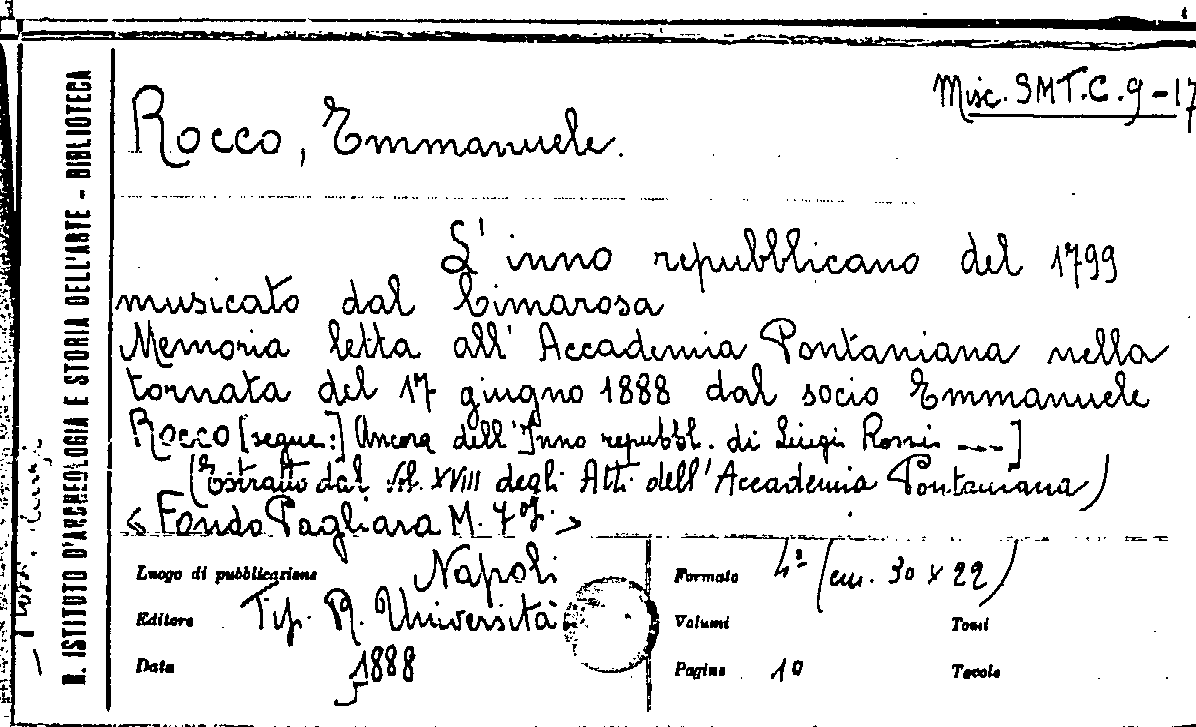 Misc. SMT.C.9-17
Rocco, Emmanuele.
L'inno repubblicano del 1799
musicato dal Cimarosa
Memoria letta all'Accademia Pontaniana nella
tornata del 17 giugno 1888 dal socio Emmanuele
Rocco [segue:] Ancora dell'Inno repubbl. di Luigi Rossi ---]
(Estratto dal Vol. XVIII degli Atti dell'Accademia Pontaniana)
< Fondo Pagliara M. >
Luogo di pubblicazione Napoli
Editore Tip. R. Università
Data 1888
Formato 4º (cm. 30 x 22)
Volumi
Tomi
Pagine 10
Tavole
R. ISTITUTO D'ARCHEOLOGIA E STORIA DELL'ARTE - BIBLIOTECA